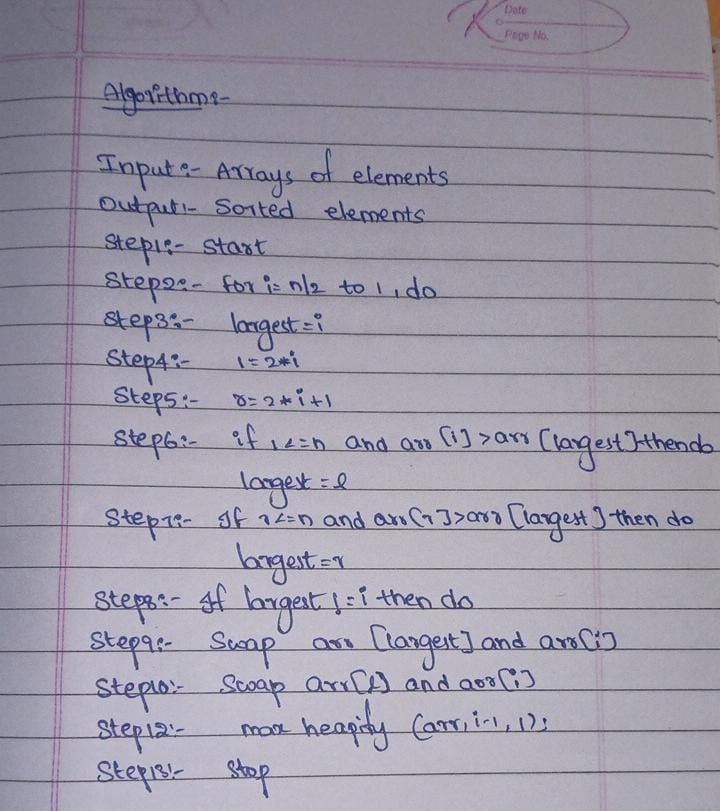 Date
Page No.
Algorithm:-
Input:- Arrays of elements
Output:- Sorted elements
Step1:- Start
Step2:- for i= n/2 to 1, do
Step3:- largest = i
Step4:- l = 2*i
Step5:- r= 2*i+1
Step6:- if l<=n and arr [i] > arr [largest] then do
largest = l
Step7:- If r<=n and arr[r]>arr [largest] then do
largest = r
Step8:- If largest != i then do
Step9:- Swap arr [largest] and arr[i]
Step10:- Swap arr[l] and arr[i]
Step12:- max heapify (arr, i-1, 1);
Step13:- Stop